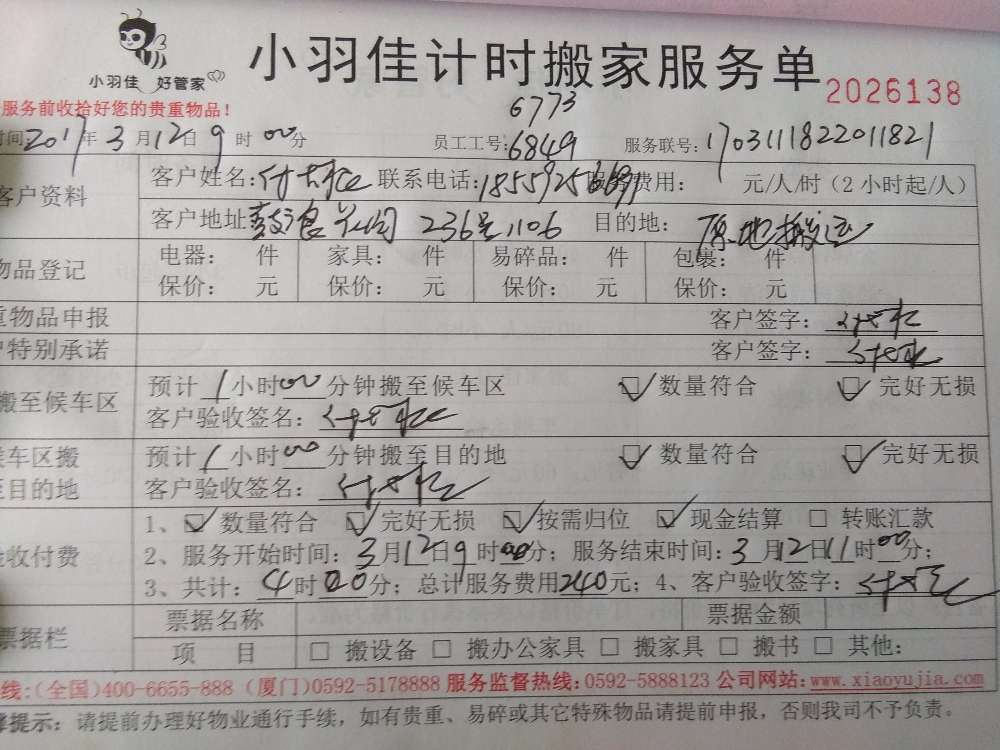 小羽佳 好管家
小羽佳计时搬家服务单
2026138
服务前收拾好您的贵重物品!
6773
时间 2017年3月12日9时00分 员工工号: 6849 服务联号: 1703111822011821
客户资料 客户姓名: 联系电话: 服务费用: 元/人/时(2小时起/人)
客户地址: 236号,106 目的地: 原地搬运
物品登记 电器: 件 家具: 件 易碎品: 件 包裹: 件
保价: 元 保价: 元 保价: 元 保价: 元
重物品申报 客户签字:
户特别承诺 客户签字:
搬至候车区 预计1小时00分钟搬至候车区 ☑数量符合 ☑完好无损
客户验收签名:
候车区搬 预计1小时00分钟搬至目的地 ☑数量符合 ☑完好无损
至目的地 客户验收签名:
验收付费 1、☑数量符合 ☑完好无损 ☑按需归位 ☑现金结算 □转账汇款
2、服务开始时间:3月12日9时00分; 服务结束时间:3月12日11时00分;
3、共计:4时00分; 总计服务费用240元; 4、客户验收签字:
票据栏 票据名称 票据金额
项 目 □搬设备 □搬办公家具 □搬家具 □搬书 □其他:
线:(全国)400-6655-888 (厦门)0592-5178888 服务监督热线:0592-5888123 公司网站:www.xiaoyujia.com
提示: 请提前办理好物业通行手续,如有贵重、易碎或其它特殊物品请提前申报,否则我司不予负责。